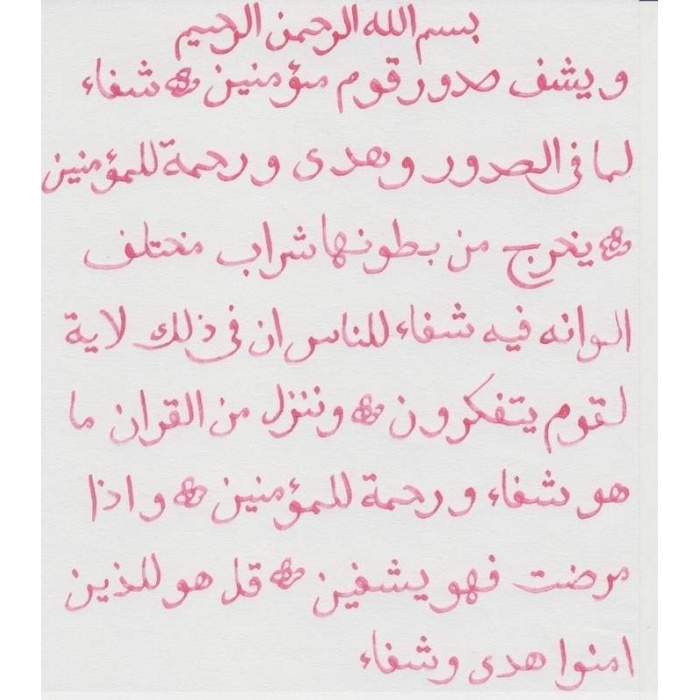 بسم الله الرحمن الرحيم
ويشف صدور قوم مؤمنين شفاء
لما فى الصدور وهدى ورحمة للمؤمنين
يخرج من بطونها شراب مختلف
الوانه فيه شفاء للناس ان فى ذلك لاية
لقوم يتفكرون وننزل من القران ما
هو شفاء ورحمة للمؤمنين واذا
مرضت فهو يشفين قل هو للذين
امنوا هدى وشفاء